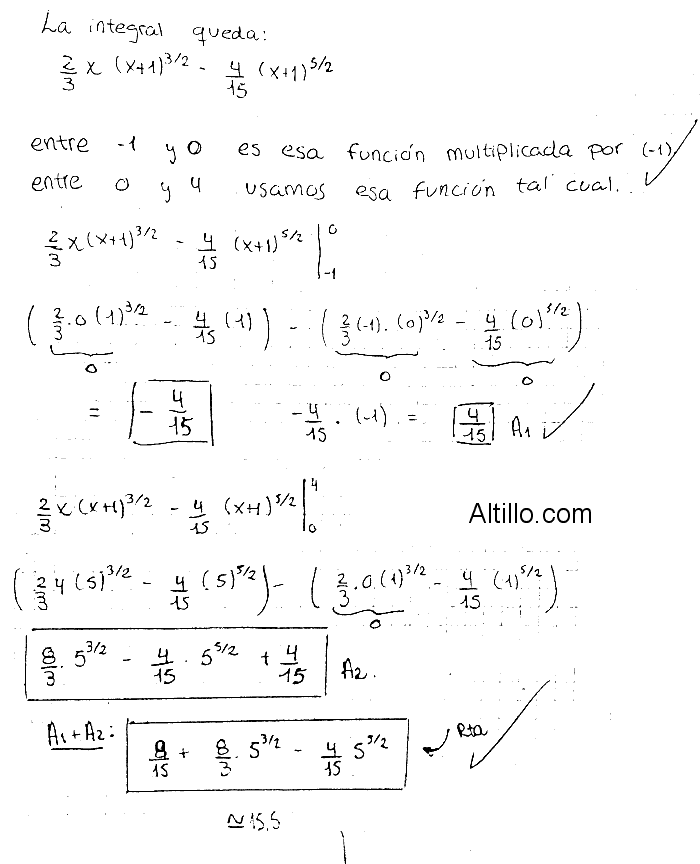 La integral queda:
2/3 x (x+1)^3/2 - 4/15 (x+1)^5/2
entre -1 y 0 es esa función multiplicada por (-1)
entre 0 y 4 usamos esa función tal cual.
2/3 x (x+1)^3/2 - 4/15 (x+1)^5/2 |_-1^0
(2/3 . 0 (1)^3/2 - 4/15 (1)) - (2/3 (-1) . (0)^3/2 - 4/15 (0)^5/2)
0 0 0
= - 4/15 -4/15 . (-1) = 4/15 A1
2/3 x (x+1)^3/2 - 4/15 (x+1)^5/2 |_0^4
Altillo.com
(2/3 4 (5)^3/2 - 4/15 (5)^5/2) - (2/3 . 0 (1)^3/2 - 4/15 (1)^5/2)
0
8/3 . 5^3/2 - 4/15 . 5^5/2 + 4/15 A2.
A1 + A2: 8/15 + 8/3 . 5^3/2 - 4/15 5^5/2 Rta
≃ 15,5